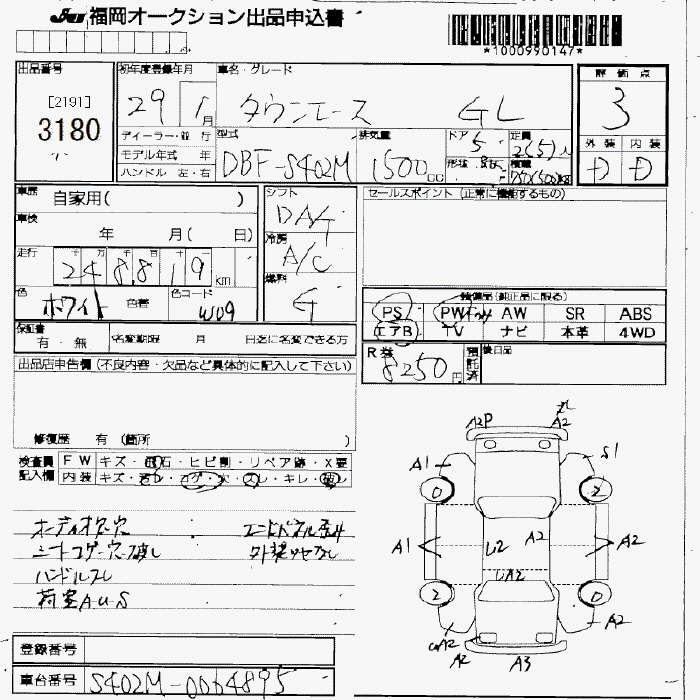 JU 福岡オークション出品申込書
*1000990147*
出品番号 初年度登録年月 車名・グレード 評価点
[2191]
3180
29年 1月 タウンエース GL 3
ディーラー・並行 型式 排気量 ドア 定員 外装 内装
モデル年式 年 DBF-S402M 1500cc 5 2(5)人 D D
ハンドル 左・右 形状 積載 750(500)KG
車歴 自家用( ) シフト DAG セールスポイント(正常に機能するもの)
車検 年 月( 日) 冷房 A/C
走行 248819km 燃料 G
色 ホワイト 色替 色コード W09
装備品(純正品に限る)
PS PW AW SR ABS
エアB TV ナビ 本革 4WD
保証書 有・無 名変期限 月 日迄に名変できる方
R券 8250円 預託済 後日品
出品店申告欄(不良内容・欠品など具体的に記入して下さい)
修復歴 有(箇所 )
検査員 FW キズ・飛石・ヒビ割・リペア跡・X要
記入欄 内装 キズ・汚れ・コゲ・穴・スレ・キレ・破レ
オーディオ欠 穴
シートコゲ穴破れ
ハンドルスレ
荷室AUS
A2P A2
A1 S1
0 2
A1 A2 A2
U2
UA2
2 0
A2
A2 A3 A2
登録番号
車台番号 S402M-0064895